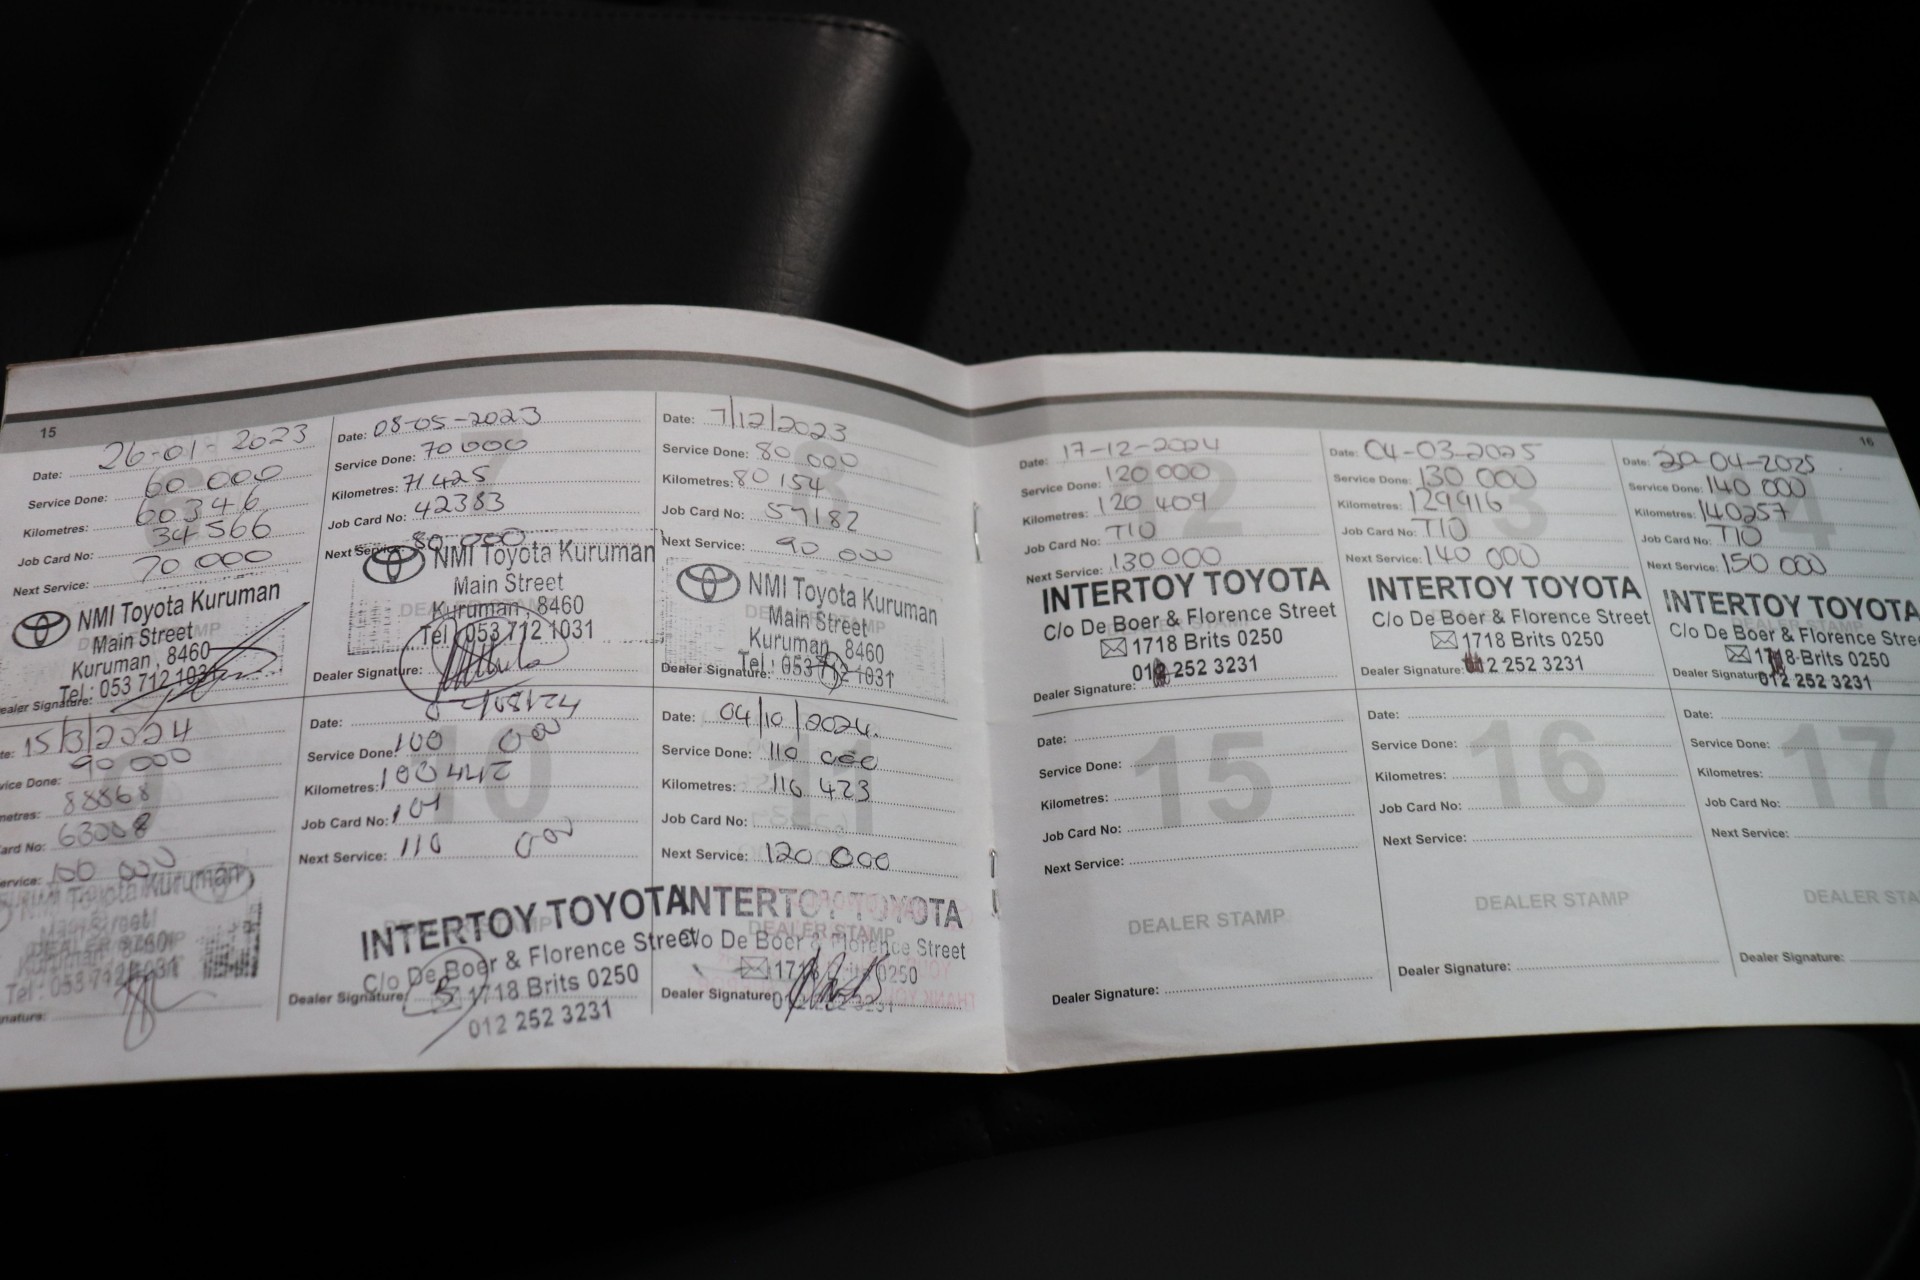 15
Date: 26-01-2023
Service Done: 60 000
Kilometres: 60346
Job Card No: 34566
Next Service: 70 000
NMI Toyota Kuruman
Main Street
Kuruman, 8460
Tel: 053 712 1031
ealer Signature:
Date: 08-05-2023
Service Done: 70 000
Kilometres: 71425
Job Card No: 42383
Next Service: 80-000
NMI Toyota Kuruman
Main Street
Kuruman, 8460
Tel: 053 712 1031
Dealer Signature:
Date: 7/12/2023
Service Done: 80 000
Kilometres: 80 154
Job Card No: 57182
Next Service: 90 000
NMI Toyota Kuruman
Main Street
Kuruman, 8460
Tel: 053 712 1031
Dealer Signature:
te: 15/3/2024
vice Done: 90 000
metres: 88868
ard No: 63008
ervice: 100 000
NMI Toyota Kuruman
Main Street
DEALER STAMP
Kuruman, 8460
Tel: 053 712 1031
nature:
10
Date: /08/24
Service Done: 100 000
Kilometres: 100442
Job Card No: 101
Next Service: 110 000
INTERTOY TOYOTA
C/o De Boer & Florence Street
1718 Brits 0250
012 252 3231
Dealer Signature:
11
Date: 04/10/2024.
Service Done: 110 000
Kilometres: 116 423
Job Card No:
Next Service: 120 000
INTERTOY TOYOTA
DEALER STAMP
C/o De Boer & Florence Street
1718 Brits 0250
012 252 3231
Dealer Signature:
16
12
Date: 17-12-2024
Service Done: 120 000
Kilometres: 120 409
Job Card No: T10
Next Service: 130 000
INTERTOY TOYOTA
C/o De Boer & Florence Street
1718 Brits 0250
012 252 3231
Dealer Signature:
Date: 04-03-2025
Service Done: 130 000
Kilometres: 129916
Job Card No: T10
Next Service: 140 000
INTERTOY TOYOTA
C/o De Boer & Florence Street
1718 Brits 0250
012 252 3231
Dealer Signature:
Date: 04-2025
Service Done: 140 000
Kilometres: 140257
Job Card No: T10
Next Service: 150 000
INTERTOY TOYOTA
C/o De Boer & Florence Stree
1718 Brits 0250
012 252 3231
Dealer Signature
15
Date:
Service Done:
Kilometres:
Job Card No:
Next Service:
DEALER STAMP
Dealer Signature:
16
Date:
Service Done:
Kilometres:
Job Card No:
Next Service:
DEALER STAMP
Dealer Signature:
17
Date:
Service Done:
Kilometres:
Job Card No:
Next Service:
DEALER STA
Dealer Signature: